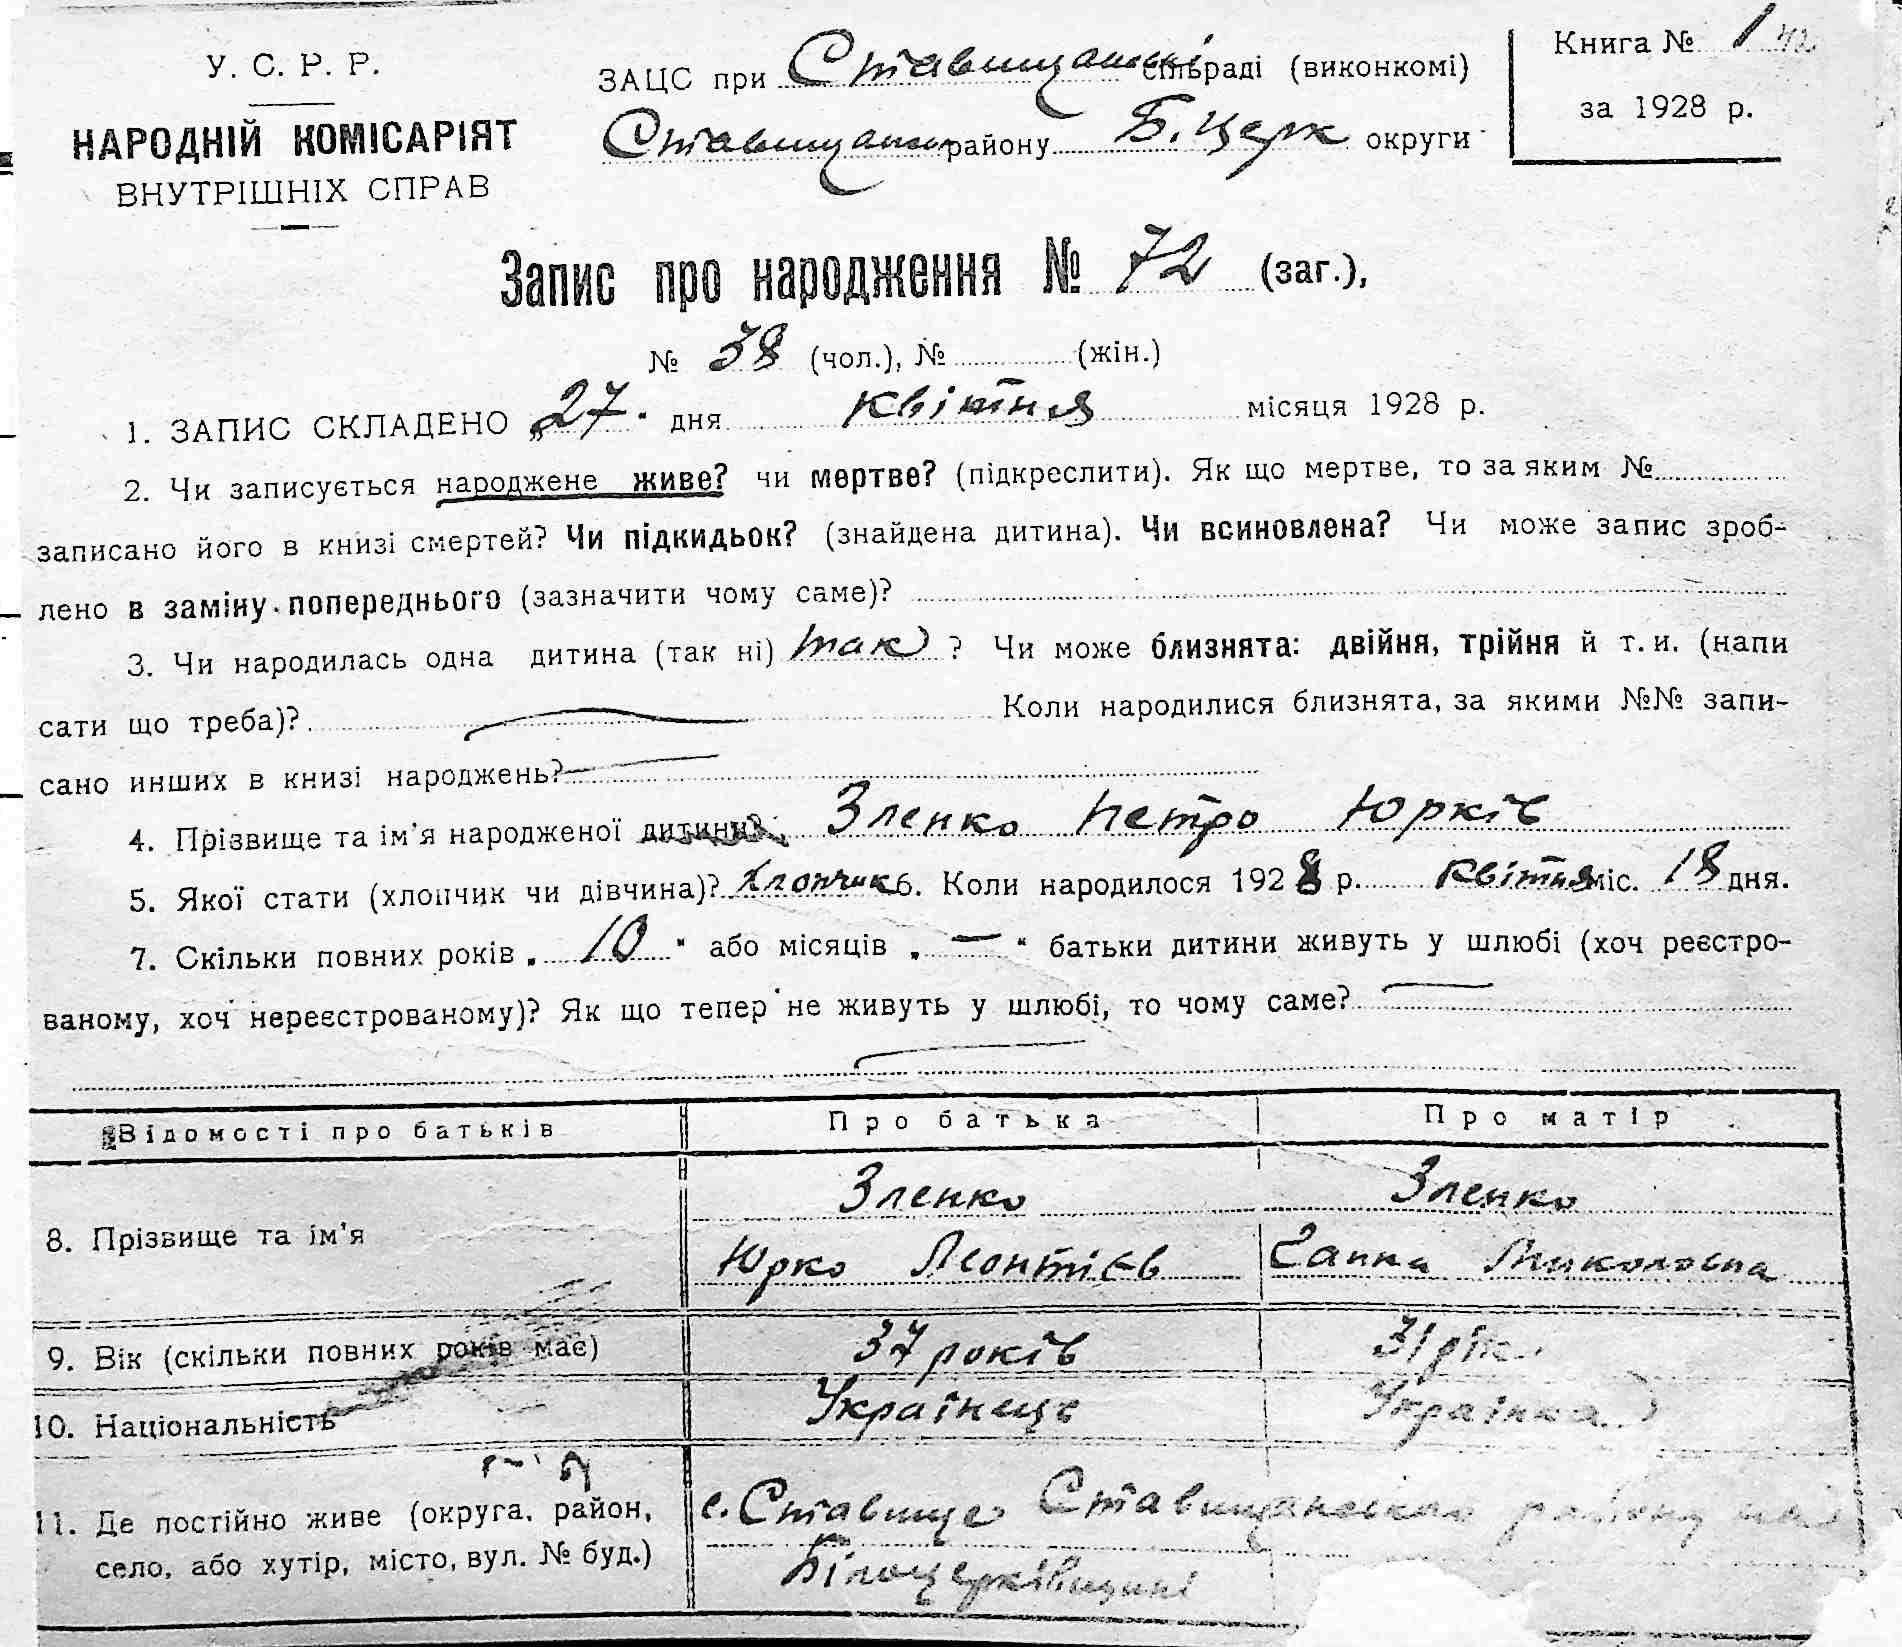 У. С. Р. Р.
НАРОДНІЙ КОМІСАРІЯТ
ВНУТРІШНІХ СПРАВ
ЗАЦС при Ставищанські сільраді (виконкомі)
Ставищанськ району Б. Церк округи
Книга № 1
за 1928 р.
Запис про народження № 72 (заг.),
№ 38 (чол.), № (жін.)
1. ЗАПИС СКЛАДЕНО „27" дня квітня місяця 1928 р.
2. Чи записується народжене живе? чи мертве? (підкреслити). Як що мертве, то за яким №
записано його в книзі смертей? Чи підкидьок? (знайдена дитина). Чи всиновлена? Чи може запис зроб-
лено в заміну попереднього (зазначити чому саме)?
3. Чи народилась одна дитина (так ні) так ? Чи може близнята: двійня, трійня й т. и. (напи
сати що треба)? Коли народилися близнята, за якими №№ запи-
сано инших в книзі народжень?
4. Прізвище та ім'я народженої дитини? Зленко Петро Юрків
5. Якої стати (хлопчик чи дівчина)? Хлопчик 6. Коли народилося 1928 р. квітня міс. 18 дня.
7. Скільки повних років „ 10 " або місяців „ — " батьки дитини живуть у шлюбі (хоч реєстро-
ваному, хоч нереєстрованому)? Як що тепер не живуть у шлюбі, то чому саме?
Відомості про батьків Про батька Про матір
8. Прізвище та ім'я
Зленко Зленко
Юрко Леонтієв Ганна Миколовна
9. Вік (скільки повних років має) 37 років 31 рік
10. Національність Українець Українка
11. Де постійно живе (округа, район,
село, або хутір, місто, вул. № буд.)
с. Ставище Ставищанського району
Білоцерківщині